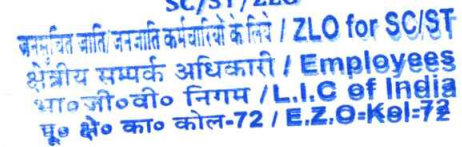 SC/ST/ZLO
जनसूचित जाति/जनजाति कर्मचारियों के लिये / ZLO for SC/ST
क्षेत्रीय सम्पर्क अधिकारी / Employees
भा०जी०वी० निगम / L.I.C of India
पू० क्षे० का० कोल-72 / E.Z.O-Kol-72